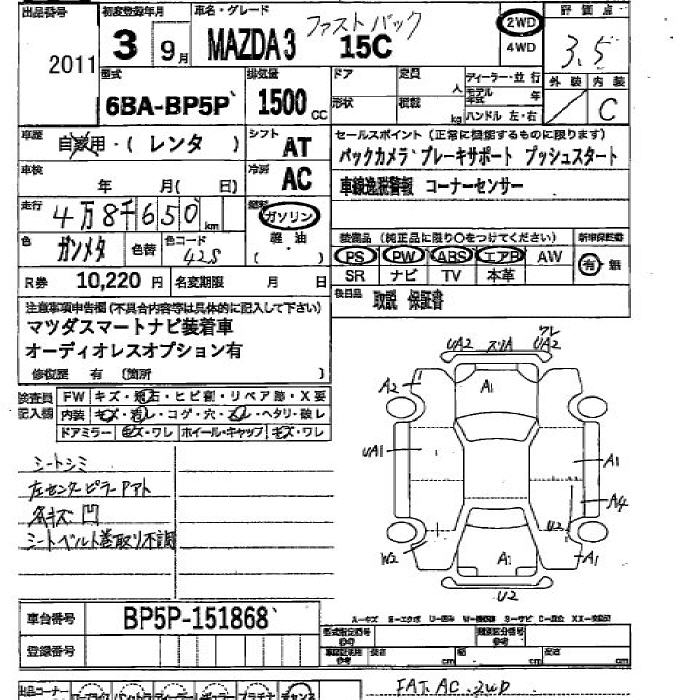 出品番号 初度登録年月 車名・グレード 評価点
2011 3 9月 MAZDA3 ファストバック 15C 2WD 4WD 3.5
型式 排気量 ドア 定員 人 ディーラー・並行 外装 内装
6BA-BP5P 1500cc 形状 積載 kg モデル年式 年 ハンドル 左・右 C
車歴 自家用・( レンタ ) シフト AT セールスポイント(正常に機能するものに限ります)
車検 年 月( 日) 冷房 AC バックカメラ ブレーキサポート プッシュスタート
車線逸脱警報 コーナーセンサー
走行 4万8千650km 燃料 ガソリン 軽油 ( )
色 ガンメタ 色替 色コード 42S
装備品(純正品に限り○をつけてください) 新車保証書
PS PW ABS エアB AW 有・無
SR ナビ TV 本革
R券 10,220円 名変期限 月 日 後日品 取説 保証書
注意事項申告欄(不具合内容等は具体的に記入して下さい)
マツダスマートナビ装着車
オーディオレスオプション有
修復歴 有(箇所 )
検査員記入欄 FW キズ・飛石・ヒビ割・リペア跡・X要
内装 キズ・汚レ・コゲ・穴・スレ・ヘタリ・破レ
ドアミラー キズ・ワレ ホイール・キャップ キズ・ワレ
シートシミ
左センターピラーアト
各キズ凹
シートベルト巻取り不調
UA2 スリA ワレ UA2
A2 A1
UA1 A1
A4
U2
W2 A1 A1
U2
車台番号 BP5P-151868
登録番号
A-キズ E-エクボ U-凹み W-補修跡 S-サビ C-腐食 XX-交換済
型式指定番号 類別区分番号
長 cm 幅 cm 高 cm
出品コーナー
FAT.AC.2WD